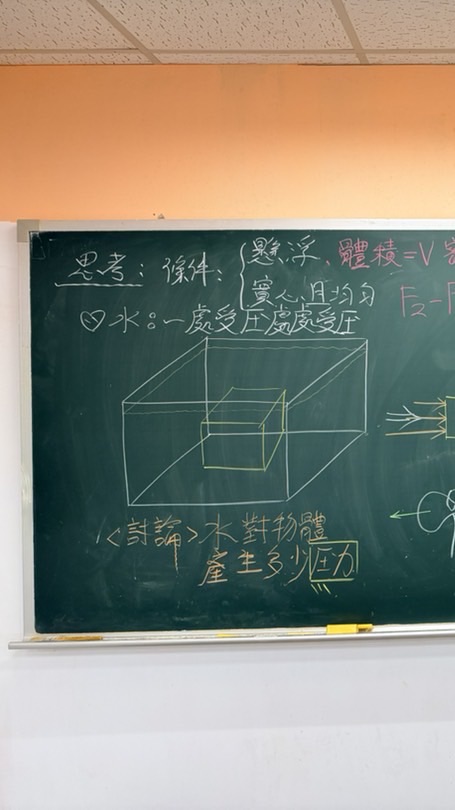 思考：條件：
懸浮、體積=V
實心且均勻
F₂-F
♡水：一處受壓處處受壓
<討論>水對物體
產生多少壓力